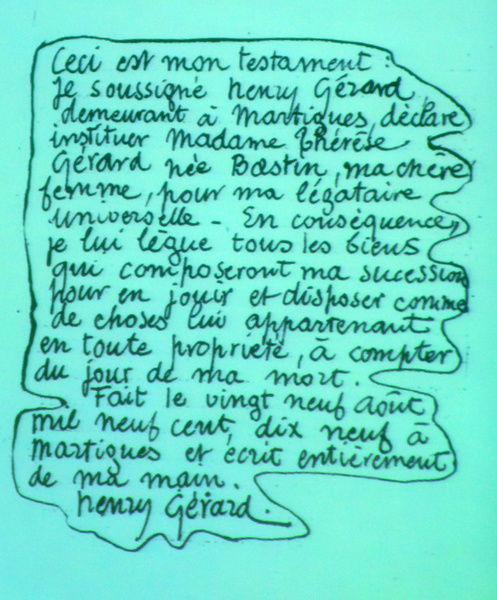 Ceci est mon testament :
je soussigné henry Gérard,
demeurant à Martigues, déclare
instituer Madame thérèse
Gérard née Bastin, ma chère
femme, pour ma légataire
universelle - En conséquence,
je lui lègue tous les biens
qui composeront ma sucession
pour en jouir et disposer comme
de choses lui appartenant
en toute propriété, à compter
du jour de ma mort.
Fait le vingt neuf août
mil neuf cent, dix neuf à
Martigues et écrit entièrement
de ma main.
henry Gérard.